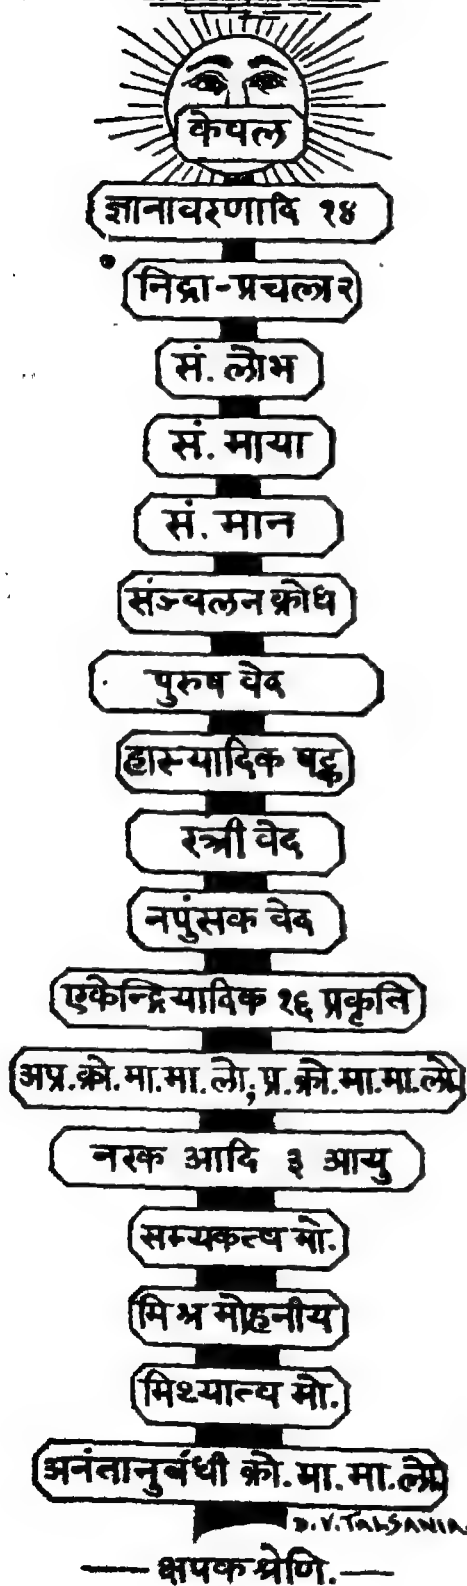 केवल
ज्ञानावरणादि १४
निद्रा-प्रचला २
सं. लोभ
सं. माया
सं. मान
संज्वलन क्रोध
पुरुष वेद
हास्यादिक षट्क
स्त्री वेद
नपुंसक वेद
एकेन्द्रियादिक १६ प्रकृति
अप्र. क्रो. मा. मा. लो; प्र. क्रो. मा. मा. लो.
नरक आदि ३ आयु
सम्यकत्व मो.
मिश्र मोहनीय
मिथ्यात्व मो.
अनंतानुबंधी क्रो. मा. मा. लो.
D.V.TALSANIA.
क्षपक श्रेणि.